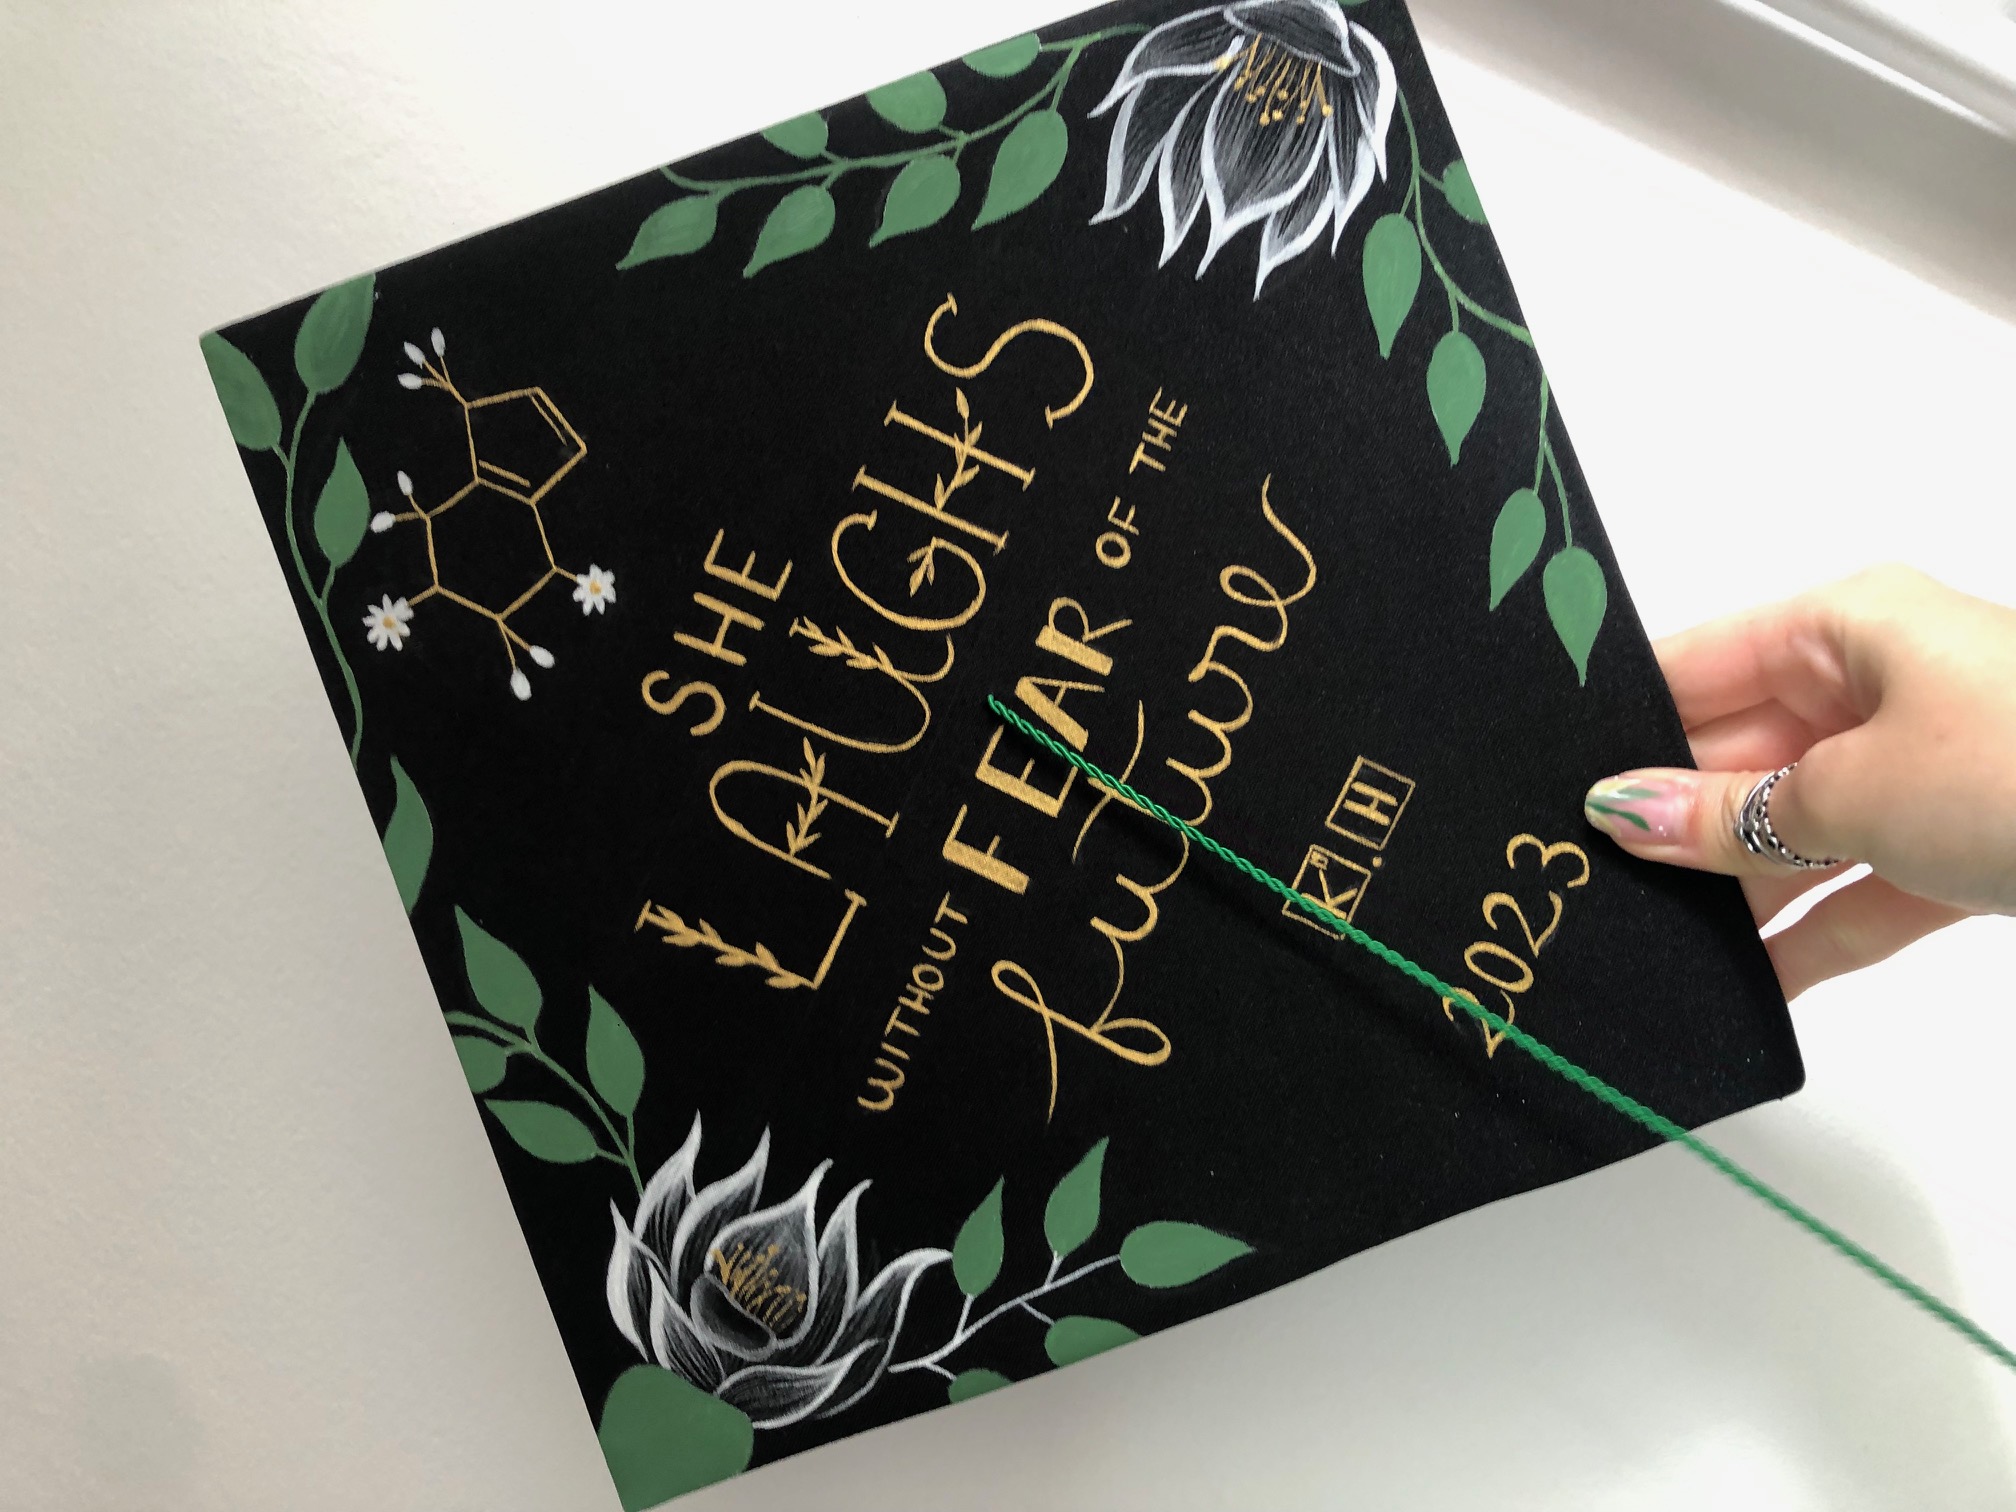 SHE
LAUGHS
WITHOUT FEAR OF THE
future
K. H
2023